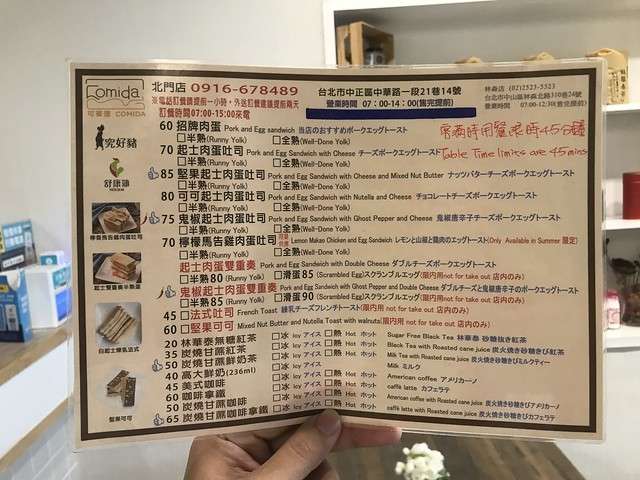 Comida
可蜜達 COMIDA
北門店 0916-678489
※電話訂餐請提前一小時，外送訂餐建議提前兩天
訂餐時間07:00-15:00來電
台北市中正區中華路一段21巷14號
營業時間 07：00-14：00(售完提前)
林森店 (02)2523-5523
台北市中山區林森北路310巷24號
營業時間 07:00-12:30(售完提前)
究好豬
舒康雞
檸香馬告雞肉蛋吐司
起士雙重奏半熟蛋
堅果可可
客滿時用餐限時45分鐘
Table Time limits are 45 mins
60 招牌肉蛋 Pork and Egg sandwich 当店のおすすめポークエッグトースト
□半熟(Runny Yolk) □全熟(Well-Done Yolk)
70 起士肉蛋吐司 Pork and Egg Sandwich with Cheese チーズポークエッグトースト
□半熟(Runny Yolk) □全熟(Well-Done Yolk)
85 堅果起士肉蛋吐司 Pork and Egg Sandwich with Cheese and Mixed Nut Butter ナッツバターチーズポークエッグトースト
□半熟(Runny Yolk) □全熟(Well-Done Yolk)
80 可可起士肉蛋吐司 Pork and Egg Sandwich with Nutella and Cheese チョコレートチーズポークエッグトースト
□半熟(Runny Yolk) □全熟(Well-Done Yolk)
75 鬼椒起士肉蛋吐司 Pork and Egg Sandwich with Ghost Pepper and Cheese 鬼椒唐辛子チーズポークエッグトースト
□半熟(Runny Yolk) □全熟(Well-Done Yolk)
70 檸檬馬告雞肉蛋吐司 Lemon Makao Chicken and Egg Sandwich レモンと山椒と鶏肉のエッグトースト(Only Available in Summer 夏限定)
□半熟(Runny Yolk) □全熟(Well-Done Yolk)
起士肉蛋雙重奏 Pork and Egg Sandwich with Double Cheese ダブルチーズポークエッグトースト
□半熟80 (Runny Yolk) □滑蛋85 (Scrambled Egg)スクランブルエッグ(限內用not for take out 店内のみ)
鬼椒起士肉蛋雙重奏 Pork and Egg Sandwich with Ghost Pepper and Double Cheese ダブルチーズと鬼椒唐辛子ポークエッグトースト
□半熟85 (Runny Yolk) □滑蛋90 (Scrambled Egg)スクランブルエッグ(限內用not for take out 店内のみ)
45 □法式吐司 French Toast 練乳チーズフレンチトースト(限內用not for take out 店内のみ)
60 □堅果可可 Mixed Nut Butter and Nutella Toast with walnuts(限內用 not for take out 店内のみ)
20 林華泰無糖紅茶 □冰 Icy アイス □熱 Hot ホット Sugar Free Black Tea 林華泰 砂糖抜き紅茶
35 炭燒甘蔗紅茶 □冰 Icy アイス □熱 Hot ホット Black Tea with Roasted cane juice 炭火焼き砂糖きび紅茶
50 炭燒甘蔗鮮奶茶 □冰 Icy アイス □熱 Hot ホット Milk Tea with Roasted cane juice 炭火焼き砂糖きびミルクティー
40 高大鮮奶(236ml) □冰 Icy アイス □熱 Hot ホット Milk ミルク
45 美式咖啡 □冰 Icy アイス □熱 Hot ホット American coffee アメリカーノ
60 咖啡拿鐵 □冰 Icy アイス □熱 Hot ホット caffè latte カフェラテ
50 炭燒甘蔗咖啡 □冰 Icy アイス □熱 Hot ホット American coffee with Roasted cane juice 炭火焼き砂糖きびアメリカーノ
65 炭燒甘蔗咖啡拿鐵 □冰 Icy アイス □熱 Hot ホット caffè latte with Roasted cane juice 炭火焼き砂糖きびカフェラテ